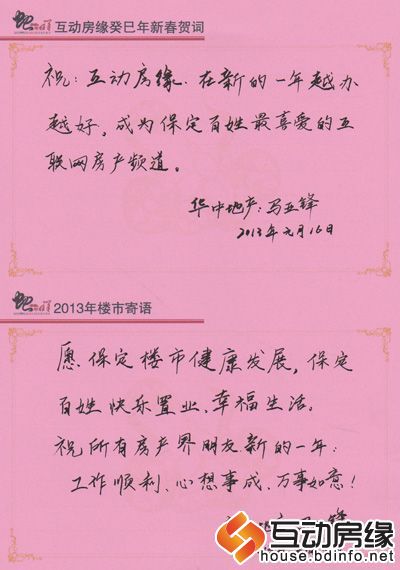 互动房缘癸巳年新春贺词
祝:互动房缘.在新的一年越办
越好。成为保定百姓最喜爱的互
联网房产频道。
华中地产:马亚锋
2013年元月16日
2013年楼市寄语
愿保定楼市健康发展,保定
百姓快乐置业、幸福生活。
祝所有房产界朋友新的一年:
工作顺利、心想事成、万事如意!
互动房缘
house.bdinfo.net